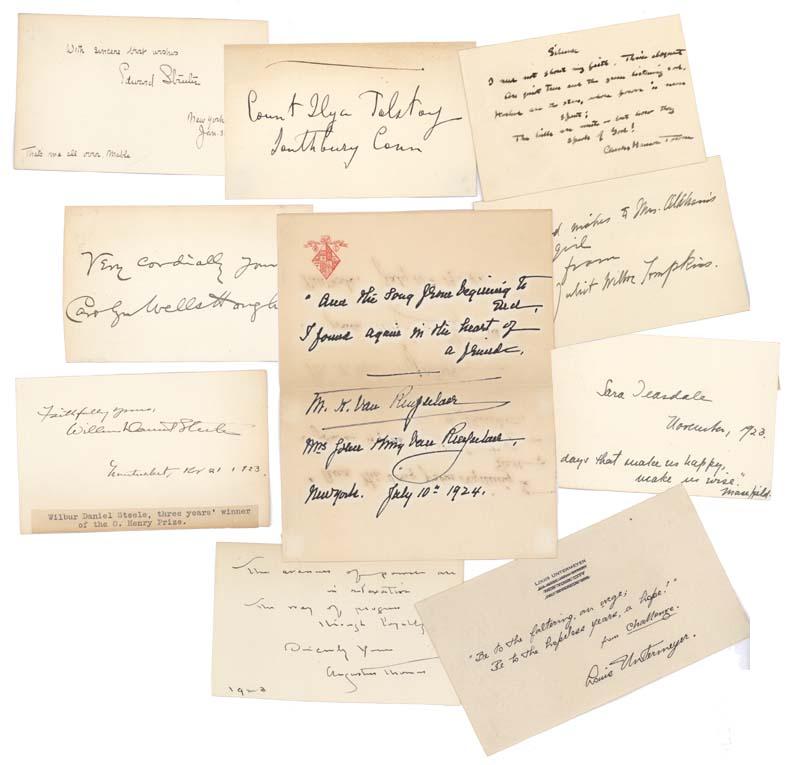 With sincere best wishes
Edward Streeter
New York
Jan. 3
Thats me all over Mable
Count Ilya Tolstoy
Southbury Conn
Silence
I need not shout my faith. Thrice eloquent
Are quiet trees and the green listening sod.
Hushed are the stars, whose power is never
spent;
The hills are mute — but how they
speak of God!
Charles Hanson Towne
Very cordially yours
Carolyn Wells Hough
wishes to Mrs.
girl
from
Juliet Wilbor Tompkins.
"And the song from beginning to
End,
I found again in the heart of
a friend.
M. K. Van Rensselaer
Mrs John King Van Rensselaer.
New York. July 10th 1924.
Faithfully yours,
Wilbur Daniel Steele
Nantucket, Nov 21 1923.
Wilbur Daniel Steele, three years' winner
of the O. Henry Prize.
Sara Teasdale
November, 1923.
days that make us happy,
make us wise".
Masefield.
The avenues of power are
in relaxation
The way of progress
through loyalty
Sincerely Yours
Augustus Thomas
1923
LOUIS UNTERMEYER
NEW YORK CITY
"Be to the faltering, an urge;
Be to the hopeless years, a hope!"
from Challenge.
Louis Untermeyer.